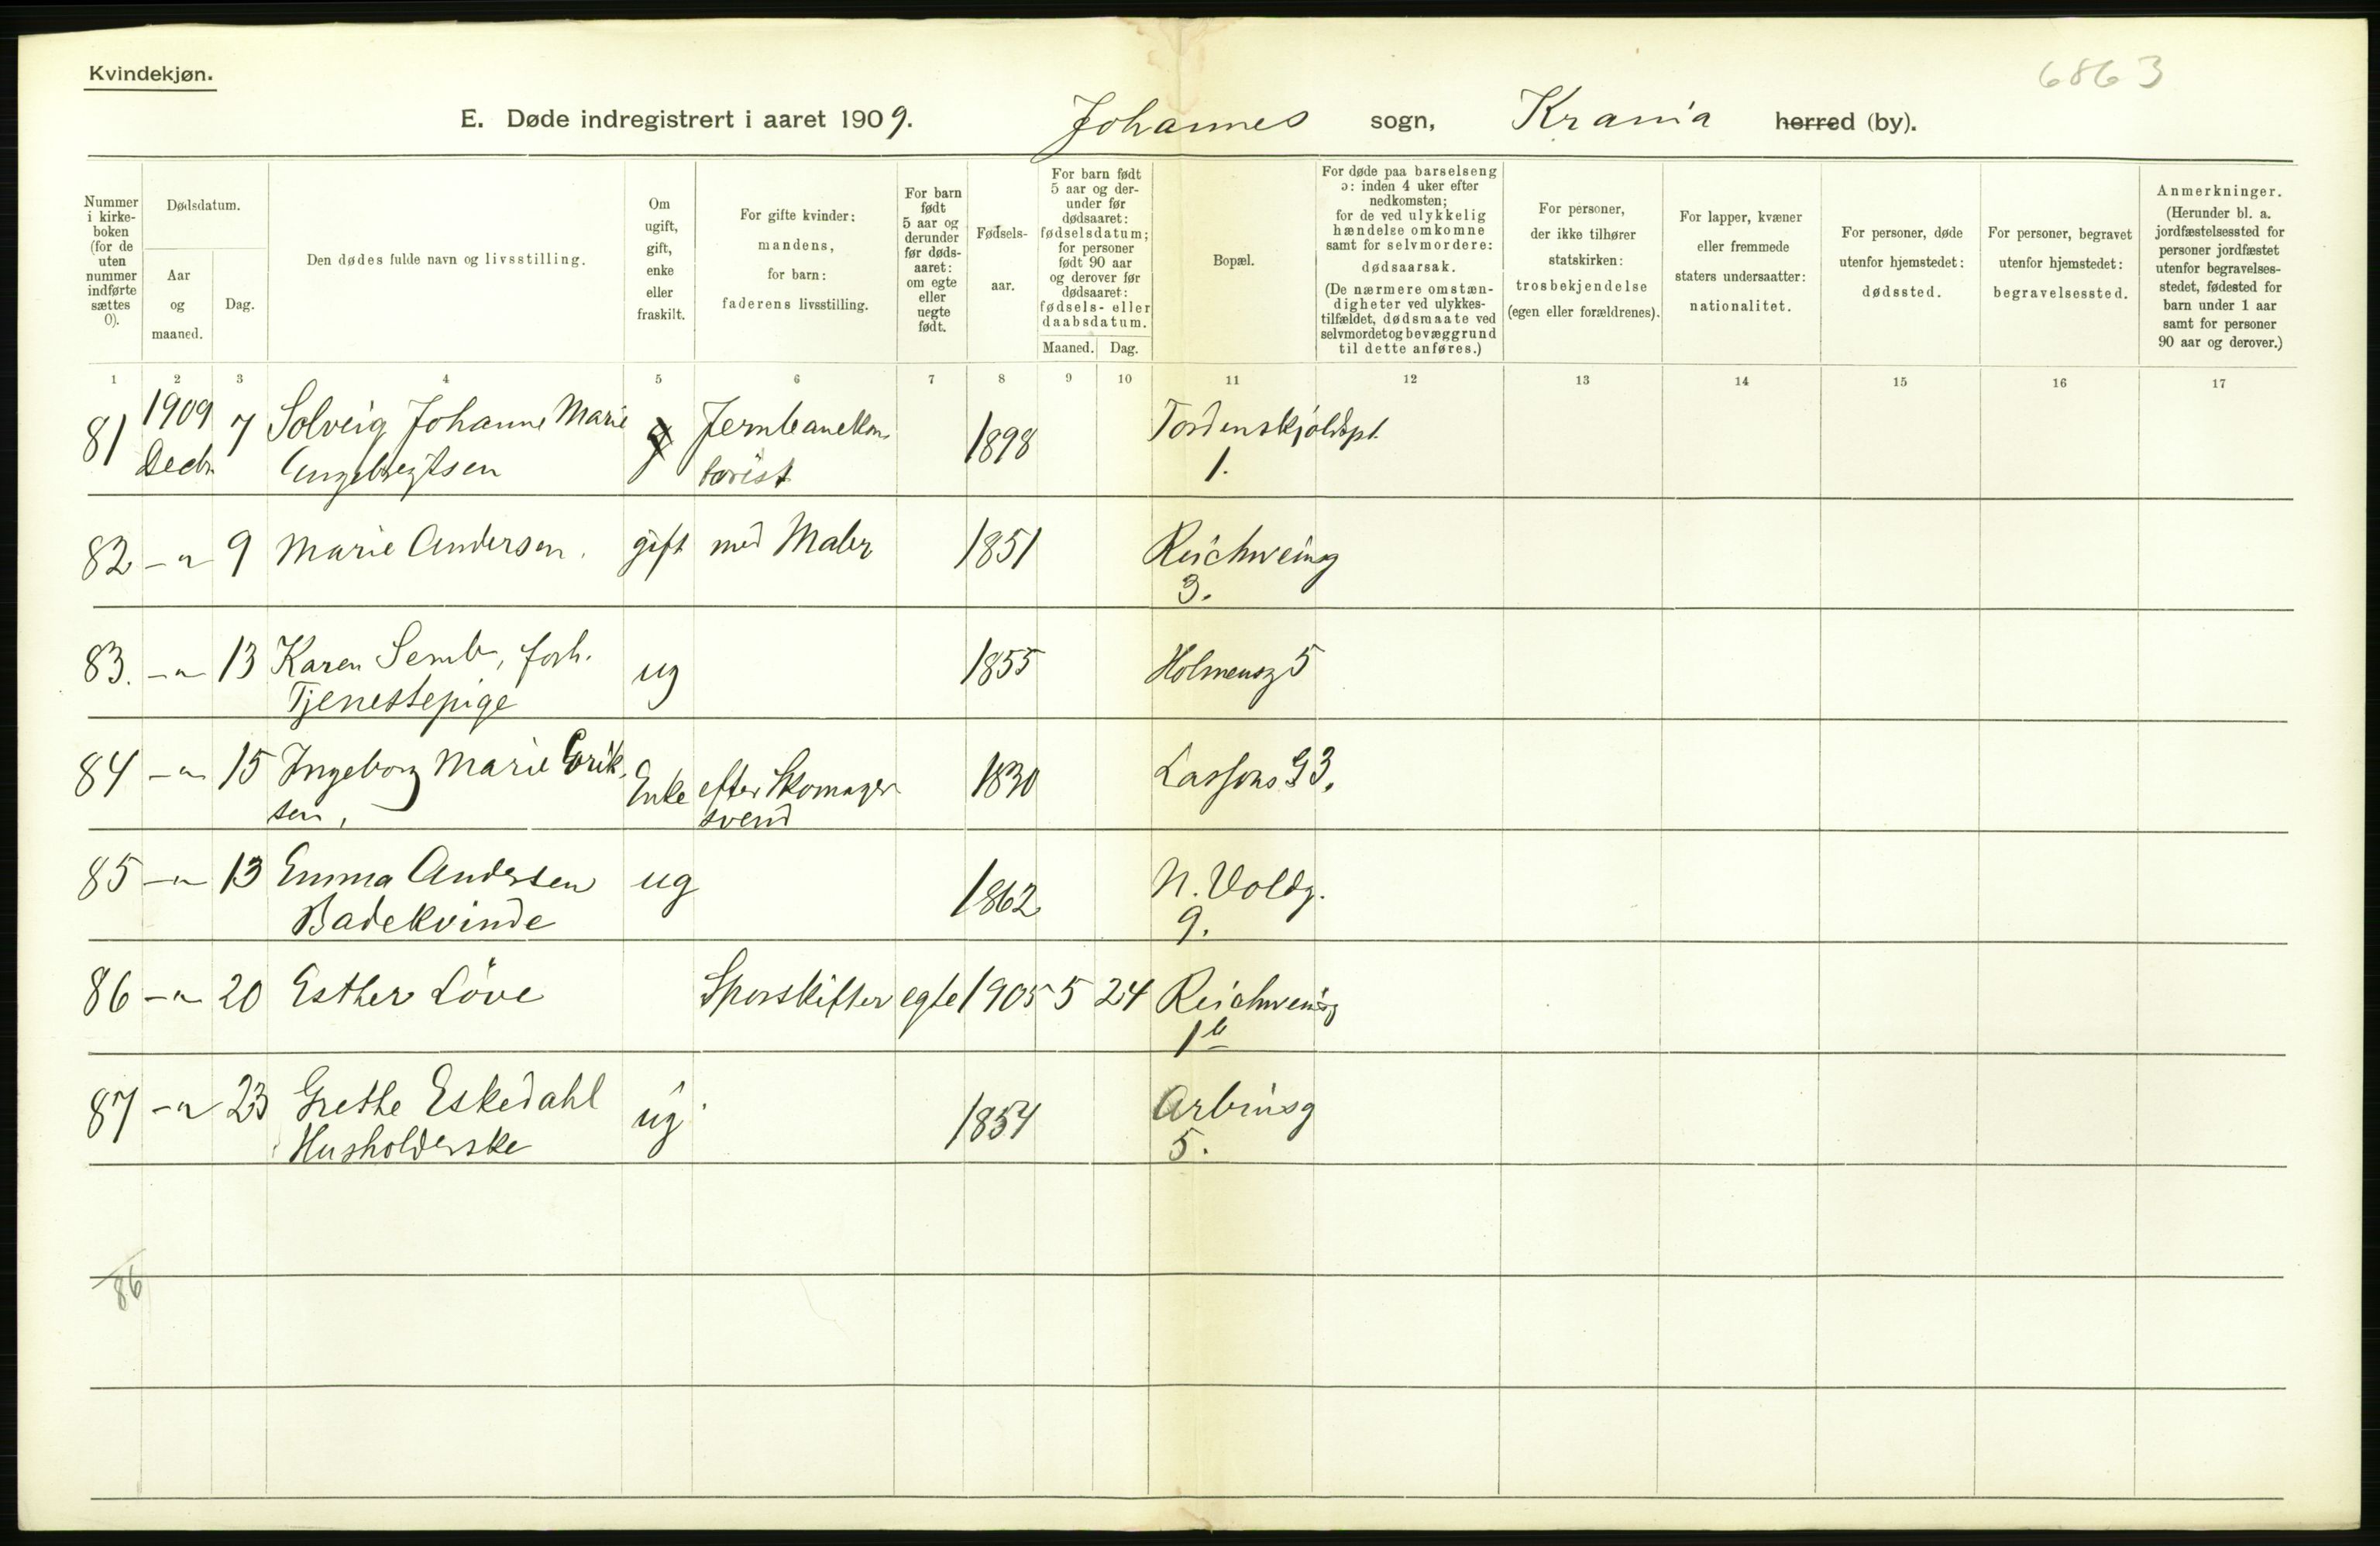 Kvindekjøn.
6863
E. Døde indregistrert i aaret 1909. Johannes sogn, Krania herred (by).
Nummer i kirke-boken (for de uten nummer indførte sættes 0).
Dødsdatum.
Aar og maaned.
Dag.
Den dødes fulde navn og livsstilling.
Om ugift, gift, enke eller fraskilt.
For gifte kvinder: mandens, for barn: faderens livsstilling.
For barn født 5 aar og derunder før døds-aaret: om egte eller uegte født.
Fødsels-aar.
For barn født 5 aar og der-under før dødsaaret: fødselsdatum; for personer født 90 aar og derover før dødsaaret: fødsels- eller daabsdatum.
Maaned. Dag.
Bopæl.
For døde paa barselseng ɔ: inden 4 uker efter nedkomsten; for de ved ulykkelig hændelse omkomne samt for selvmordere: dødsaarsak. (De nærmere omstæn-digheter ved ulykkes-tilfældet, dødsmaate ved selvmordet og bevæggrund til dette anføres.)
For personer, der ikke tilhører statskirken: trosbekjendelse (egen eller forældrenes).
For lapper, kvæner eller fremmede staters undersaatter: nationalitet.
For personer, døde utenfor hjemstedet: dødssted.
For personer, begravet utenfor hjemstedet: begravelsessted.
Anmerkninger. (Herunder bl. a. jordfæstelsessted for personer jordfæstet utenfor begravelses-stedet, fødested for barn under 1 aar samt for personer 90 aar og derover.)
1 2 3 4 5 6 7 8 9 10 11 12 13 14 15 16 17
81 1909 7 Solveig Johanne Marie Jernbanekon- 1898 Tordenskjoldspl.
Decbr. Engebregtsen torist 1.
82 -"- 9 Marie Andersen. gift med Maler 1851 Reichweinsg
3.
83. -"- 13 Karen Semb, forh. ug 1855 Holmensg 5
Tjenestepige
84 -"- 15 Ingeborg Marie Erik- Enke efter Skomager 1830 Lassons G 3.
sen, svend
85 -"- 13 Emma Andersen ug 1862 N. Voldg.
Badekvinde 9.
86 -"- 20 Esther Löve Sporskifter egte 1905 5 24 Reichweinsg
1b
87 -"- 23 Grethe Eskedahl ug 1854 Arbinsg
Husholderske 5.
86